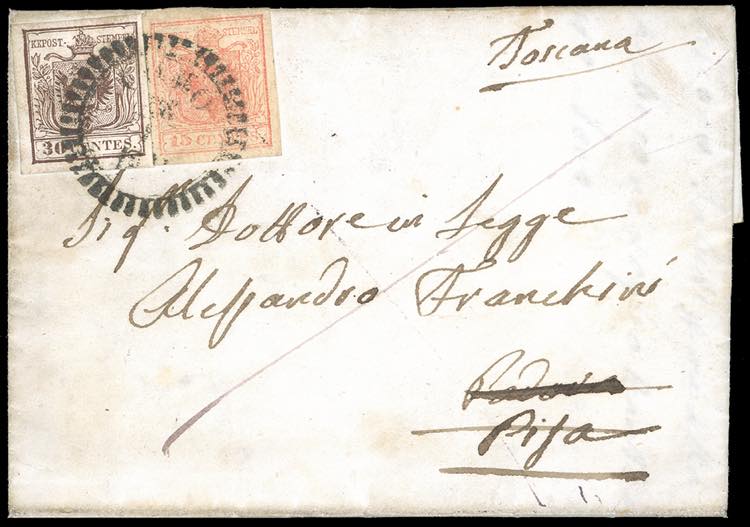 KKPOST-STEMPEL
30 CENTES.
KKPOST-STEMPEL
15 CENTES.
Toscana
Sig. Dottore in Legge
Alessandro Franchini
Padova
Pisa